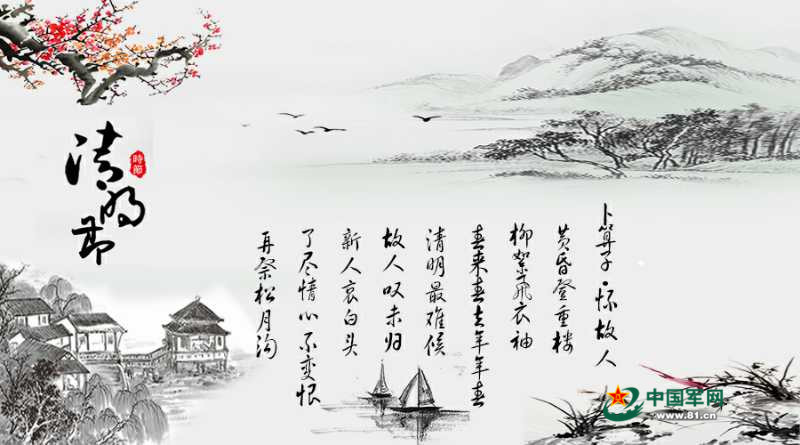 清明节
時節
卜算子·怀故人
黄昏登重楼
柳絮飞衣袖
春来春去年年春
清明最难候
故人叹未归
新人哀白头
了尽情心不变恨
再祭松月沟
中国军网
www.81.cn